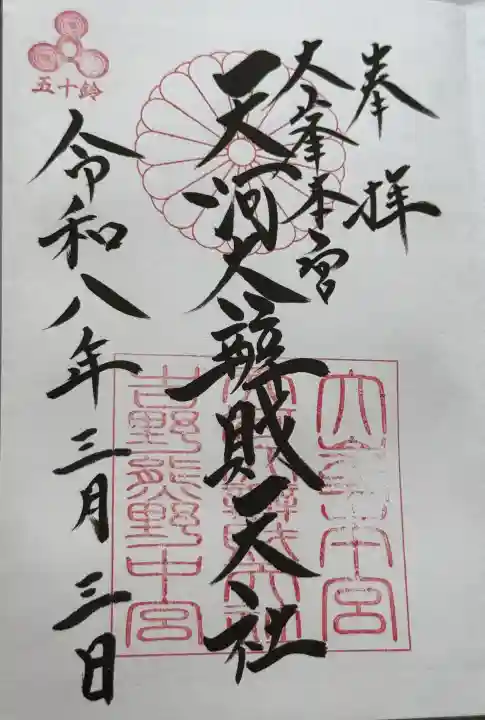 奉拝
大峯本宮
天河大辨財天社
令和八年三月三日
五十鈴
大峯本宮
吉野熊野中宮